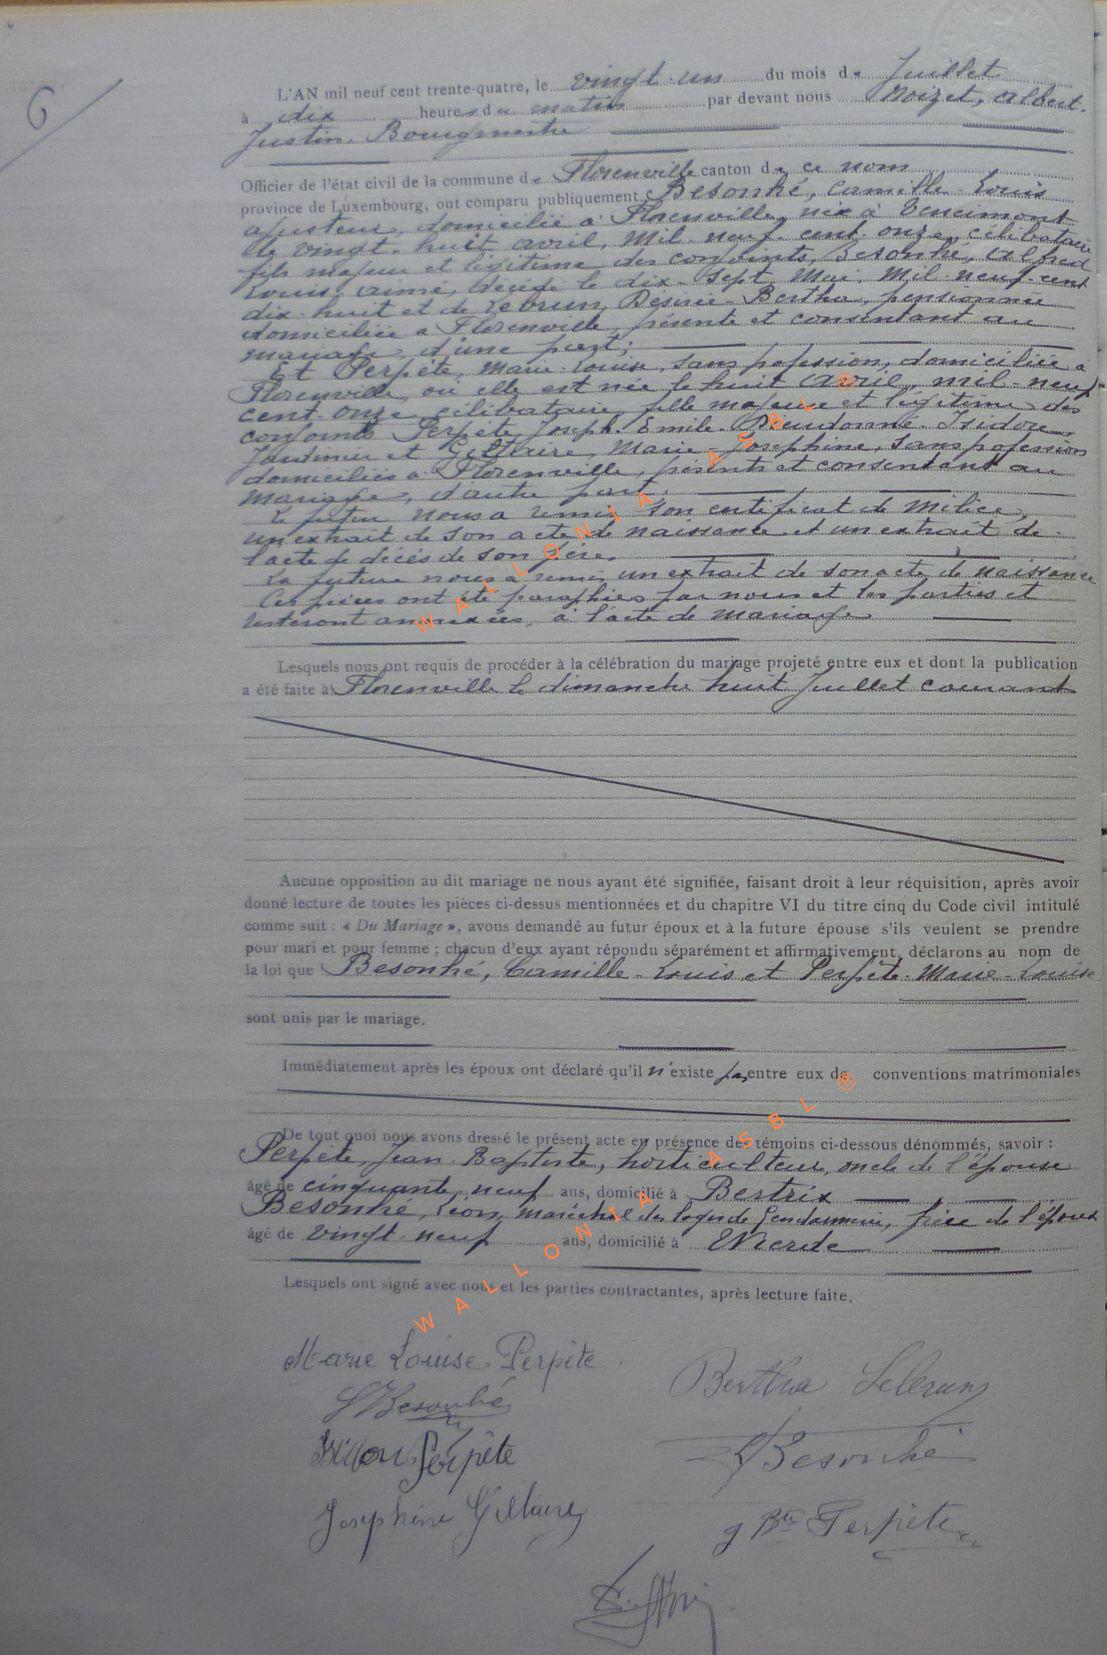 6
L'AN mil neuf cent trente-quatre, le vingt-un du mois de Juillet
à dix heures du matin par devant nous Noizet, Albert-
Justin, Bourgmestre
Officier de l'état civil de la commune de Florenville canton de ce nom
province de Luxembourg, ont comparu publiquement Besonhé, Camille-Louis
ajusteur, domicilié à Florenville, né à Vencimont
le vingt-huit avril, mil-neuf-cent-onze, célibataire
fils majeur et légitime des conjoints, Besonhé, Alfred
Louis, Aimé, décédé le dix-sept Mai, Mil-neuf-cent
dix-huit et de Lebrun, Désirée-Bertha, pensionnée
domiciliée à Florenville, présente et consentant au
mariage, d'une part;
Et Perpète, Marie-Louise, sans profession, domiciliée à
Florenville, où elle est née le huit avril, mil-neuf
cent-onze, célibataire, fille majeure et légitime des
conjoints Perpète, Joseph-Emile-Dieudonné-Isidore,
Jardinier et Gillaire, Marie-Josephine, sans profession
domiciliés à Florenville, présents et consentant au
mariage, d'autre part.
Le futur nous a remis son certificat de Milice,
un extrait de son acte de naissance et un extrait de
l'acte de décès de son père.
La future nous a remis un extrait de son acte de naissance
Ces pièces ont été paraphées par nous et les parties et
resteront annexées, à l'acte de mariage.
Lesquels nous ont requis de procéder à la célébration du mariage projeté entre eux et dont la publication
a été faite à Florenville le dimanche huit Juillet courant
Aucune opposition au dit mariage ne nous ayant été signifiée, faisant droit à leur réquisition, après avoir
donné lecture de toutes les pièces ci-dessus mentionnées et du chapitre VI du titre cinq du Code civil intitulé
comme suit : « Du Mariage », avons demandé au futur époux et à la future épouse s'ils veulent se prendre
pour mari et pour femme ; chacun d'eux ayant répondu séparément et affirmativement, déclarons au nom de
la loi que Besonhé, Camille-Louis et Perpète-Marie-Louise
sont unis par le mariage.
Immédiatement après les époux ont déclaré qu'il n'existe pas entre eux de conventions matrimoniales
De tout quoi nous avons dressé le présent acte en présence des témoins ci-dessous dénommés, savoir :
Perpète, Jean-Baptiste, horticulteur, oncle de l'épouse
âgé de cinquante-neuf ans, domicilié à Bertrix
Besonhé, Léon, maréchal des logis de Gendarmerie, frère de l'époux
âgé de vingt-neuf ans, domicilié à Wierde
Lesquels ont signé avec nous et les parties contractantes, après lecture faite.
Marie Louise Perpète
Bertha Lebrun
Besonhé
Perpète
Besonhé
Josephine Gillaire
Perpète
WALLONIA ASBL ®
WALLONIA ASBL ®